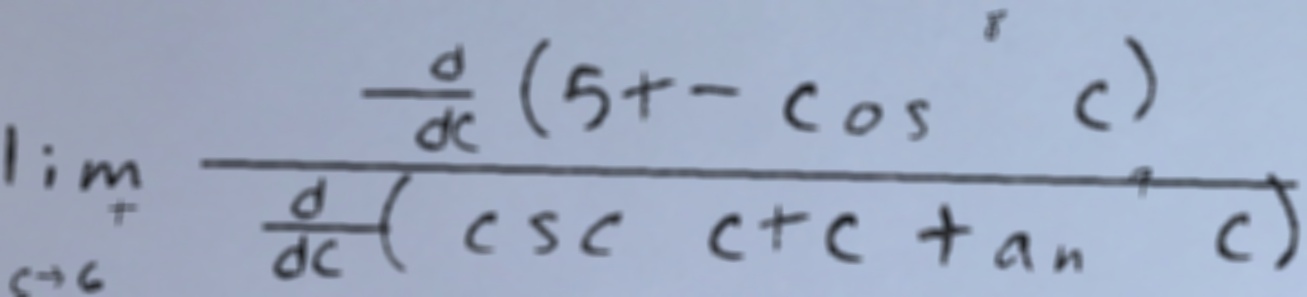 \lim_{c \to 6^+} \frac{\frac{d}{dc}(5 + -\cos^8 c)}{\frac{d}{dc}(\csc c + c \tan^9 c)}